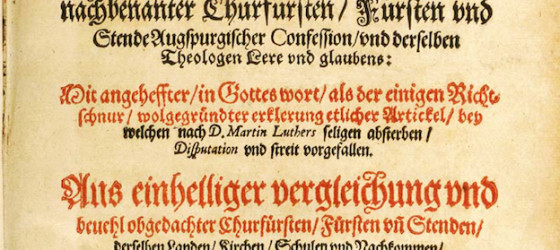 nachbenanter Churfürsten/ Fürsten vnd
Stende Augspurgischer Confession/ vnd derselben
Theologen Lere vnd glaubens:
Mit angeheffter/ in Gottes wort/ als der einigen Richt-
schnur/ wolgegründter erklerung etlicher Artickel/ bey
welchen nach D. Martin Luthers seligen absterben/
Disputation vnd streit vorgefallen.
Aus einhelliger vergleichung vnd
beuehl obgedachter Churfürsten/ Fürsten vñ Stenden/
derselben Landen/ Kirchen/ Schulen vnd Nachkommen/